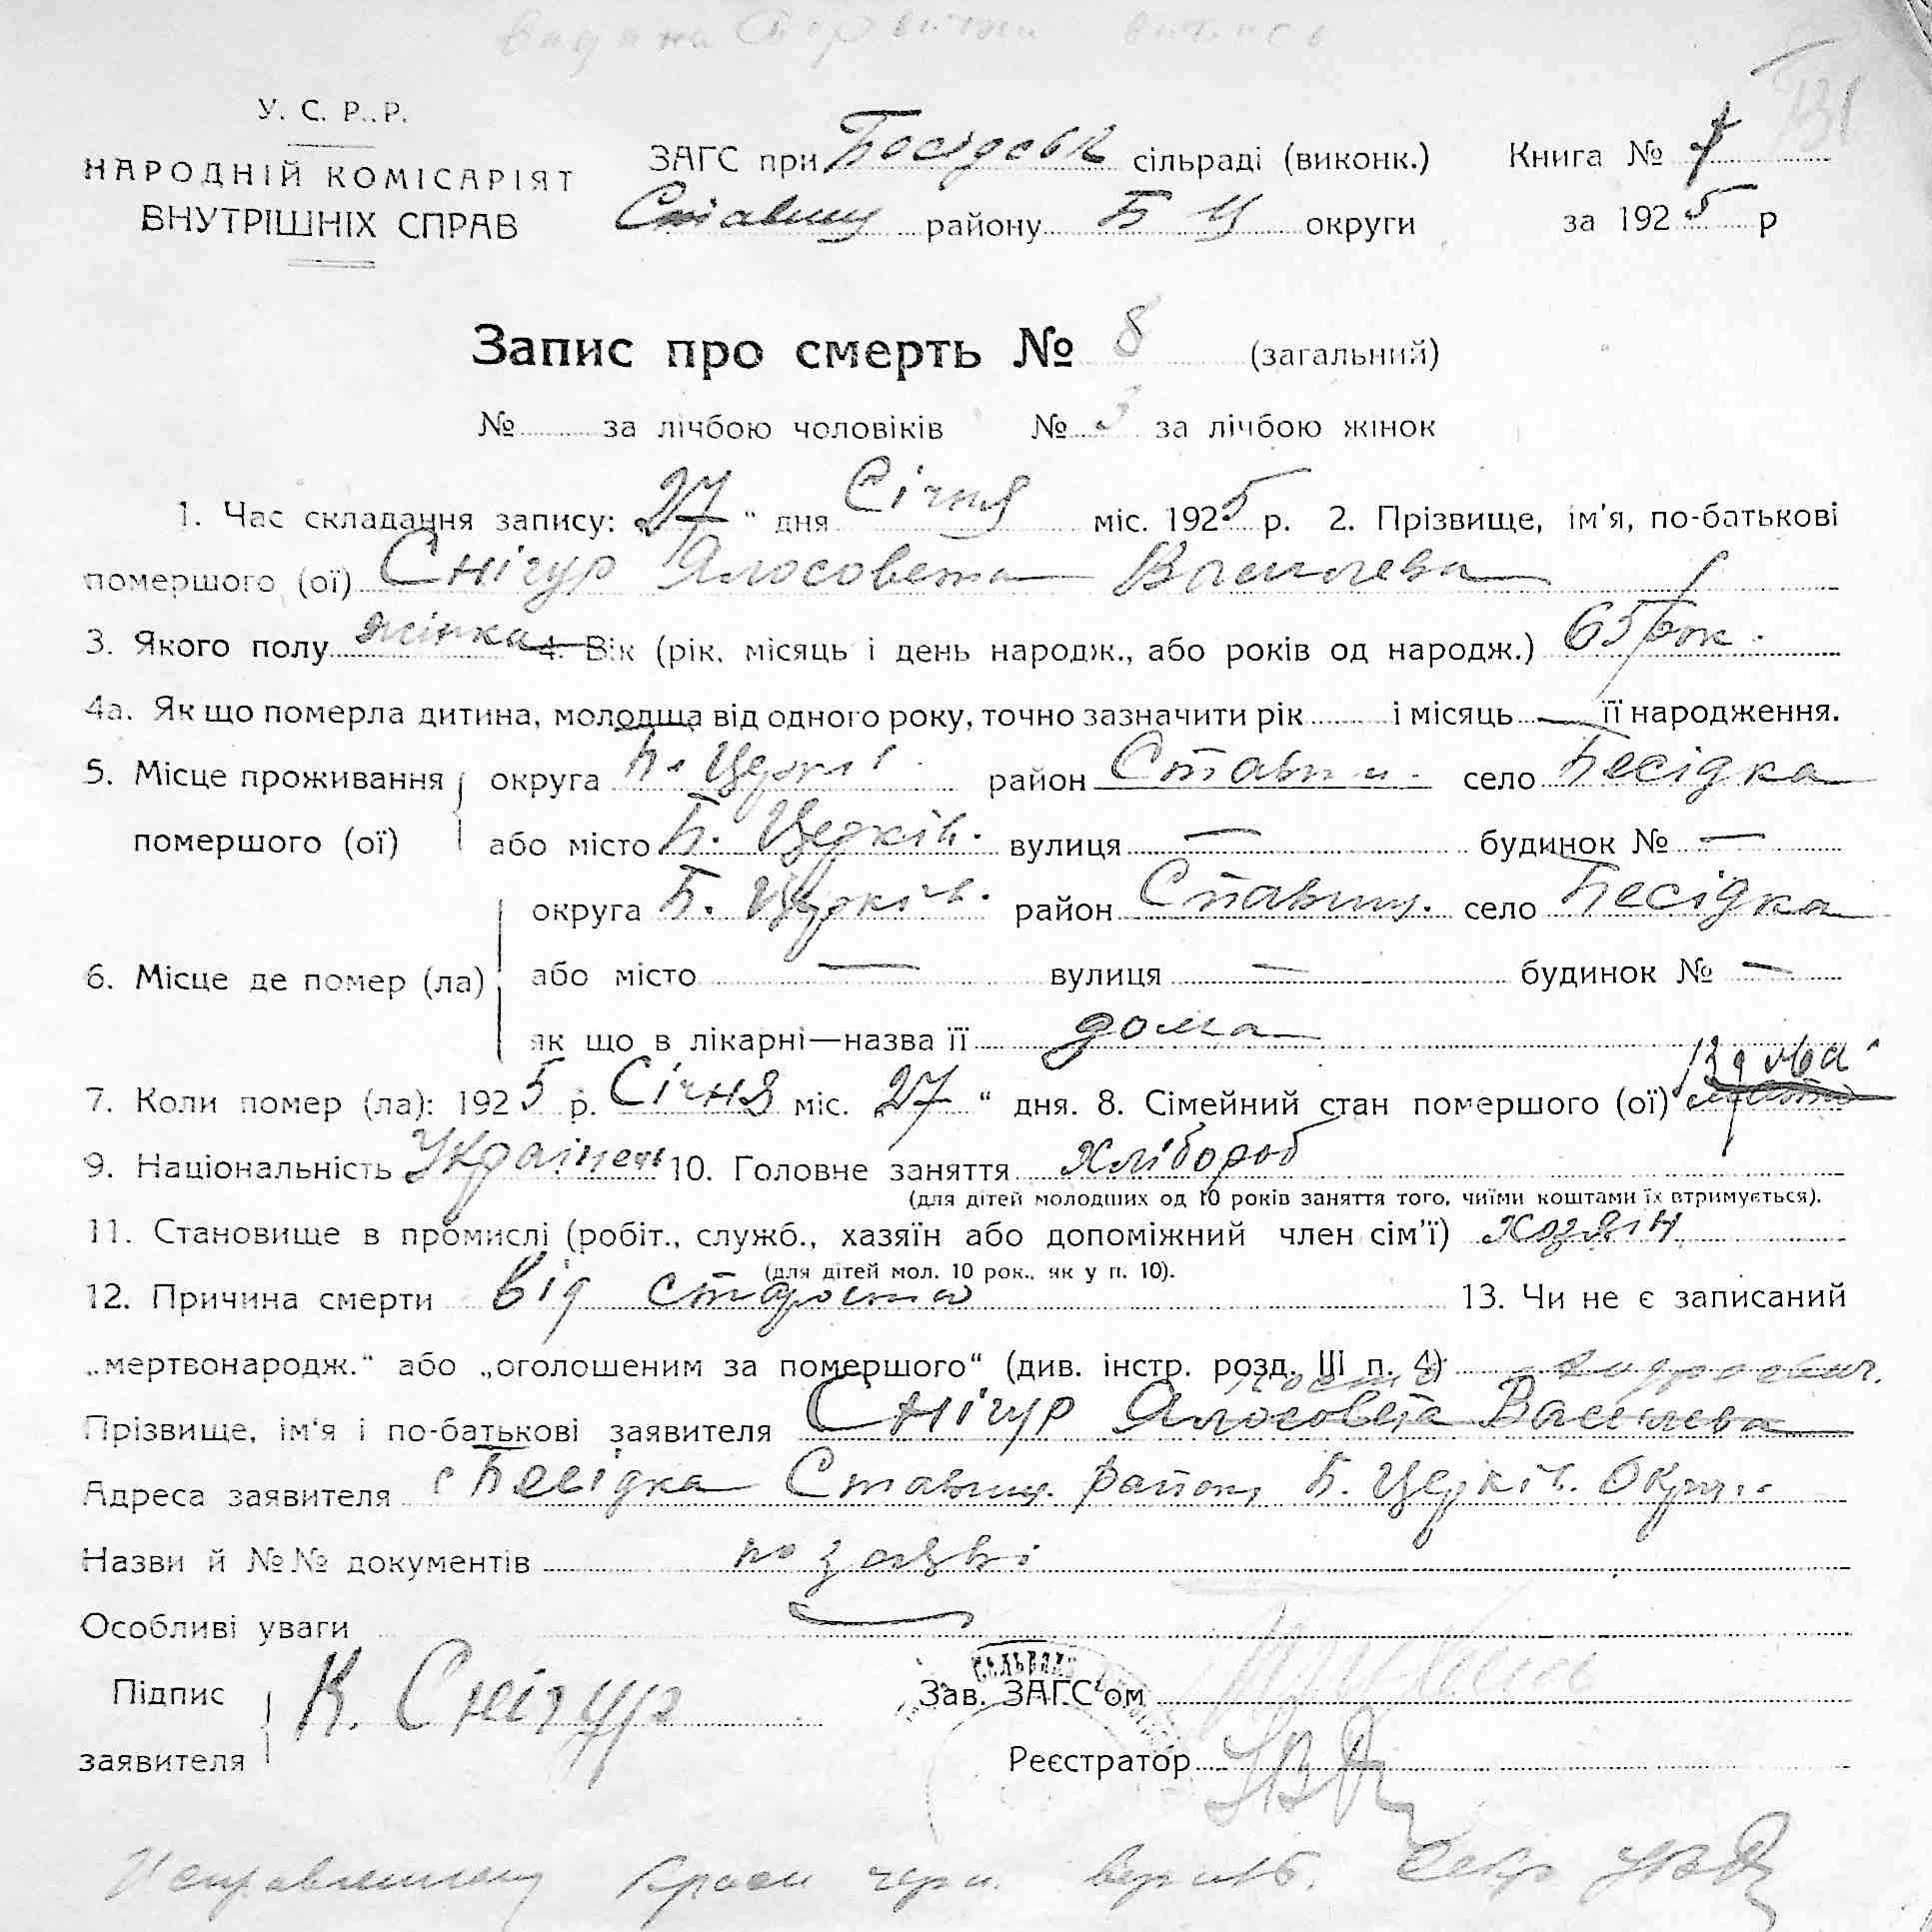 видана
У. С. Р.. Р.
НАРОДНІЙ КОМІСАРІЯТ
ВНУТРІШНІХ СПРАВ
ЗАГС при Босідськ сільраді (виконк.) Книга №
Ставищ району Б Ц округи за 1925 р
Запис про смерть № 8 (загальний)
№ за лічбою чоловіків № 3 за лічбою жінок
1. Час складання запису: „27“ дня Січня міс. 1925 р. 2. Прізвище, ім'я, по-батькові
помершого (ої) Снігур Ялосовета Василева
3. Якого полу жінка 4. Вік (рік, місяць і день народж., або років од народж.) 65 рок.
4а. Як що померла дитина, молодща від одного року, точно зазначити рік і місяць — її народження.
5. Місце проживання округа Б. Церкі район Ставищ. село Бесідка
помершого (ої) або місто Б. Церків. вулиця — будинок № —
округа Б. Церків. район Ставищ. село Бесідка
6. Місце де помер (ла) або місто — вулиця — будинок № —
як що в лікарні—назва її дома
7. Коли помер (ла): 1925 р. Січня міс. „27“ дня. 8. Сімейний стан помершого (ої) Вдова
9. Національність Українець 10. Головне заняття Хлібороб
(для дітей молодших од 10 років заняття того, чиїми коштами їх втримується).
11. Становище в промислі (робіт., служб., хазяїн або допоміжний член сім'ї) хозяїн
(для дітей мол. 10 рок., як у п. 10).
12. Причина смерти від старости 13. Чи не є записаний
„мертвонародж.“ або „оголошеним за помершого“ (див. інстр. розд. III п. 4)
Прізвище, ім'я і по-батькові заявителя Снігур Ялосовета Василева
Адреса заявителя с Бесідка Ставищ. району Б. Церків. Окру..
Назви й №№ документів по заяві
Особливі уваги
Підпис заявителя К. Снігур
Зав. ЗАГС'ом
Реєстратор